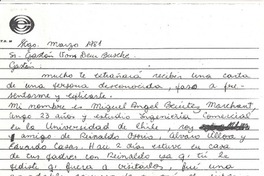 Stgo. Marzo 1981
Sr. Gastón Von Dem Bussche
Gastón:
mucho te extrañará recibir una carta
de una persona desconocida, paso a pre-
sentarme y explicarte.
Mi nombre es Miguel Angel Benítez Marchant,
tengo 23 años y estudio Ingeniería Comercial
en la Universidad de Chile, soy
amigo de Reinaldo Alvaro
Eduardo Casas. Hace 2 días estuve en casa
de tus padres con Reinaldo ya q' tú le
pediste q' fuera a visitarlos, fué una